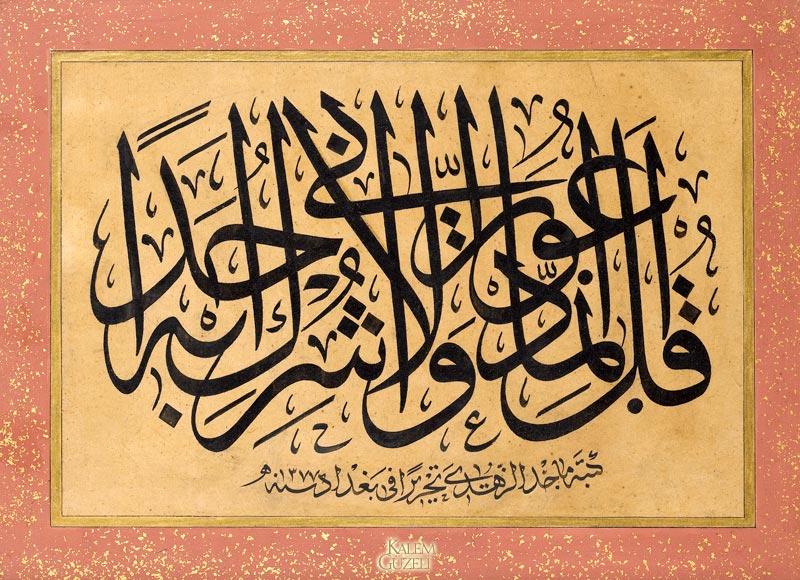 قُلْ اِنَّمَا اَدْعُو رَبِّي وَلَا اُشْرِكُ بِهِ اَحَدًا
كتبه ماجد الزهدي تحريرًا في بغداد سنه ١٣٧٧ ه
KALEM
GUZELI